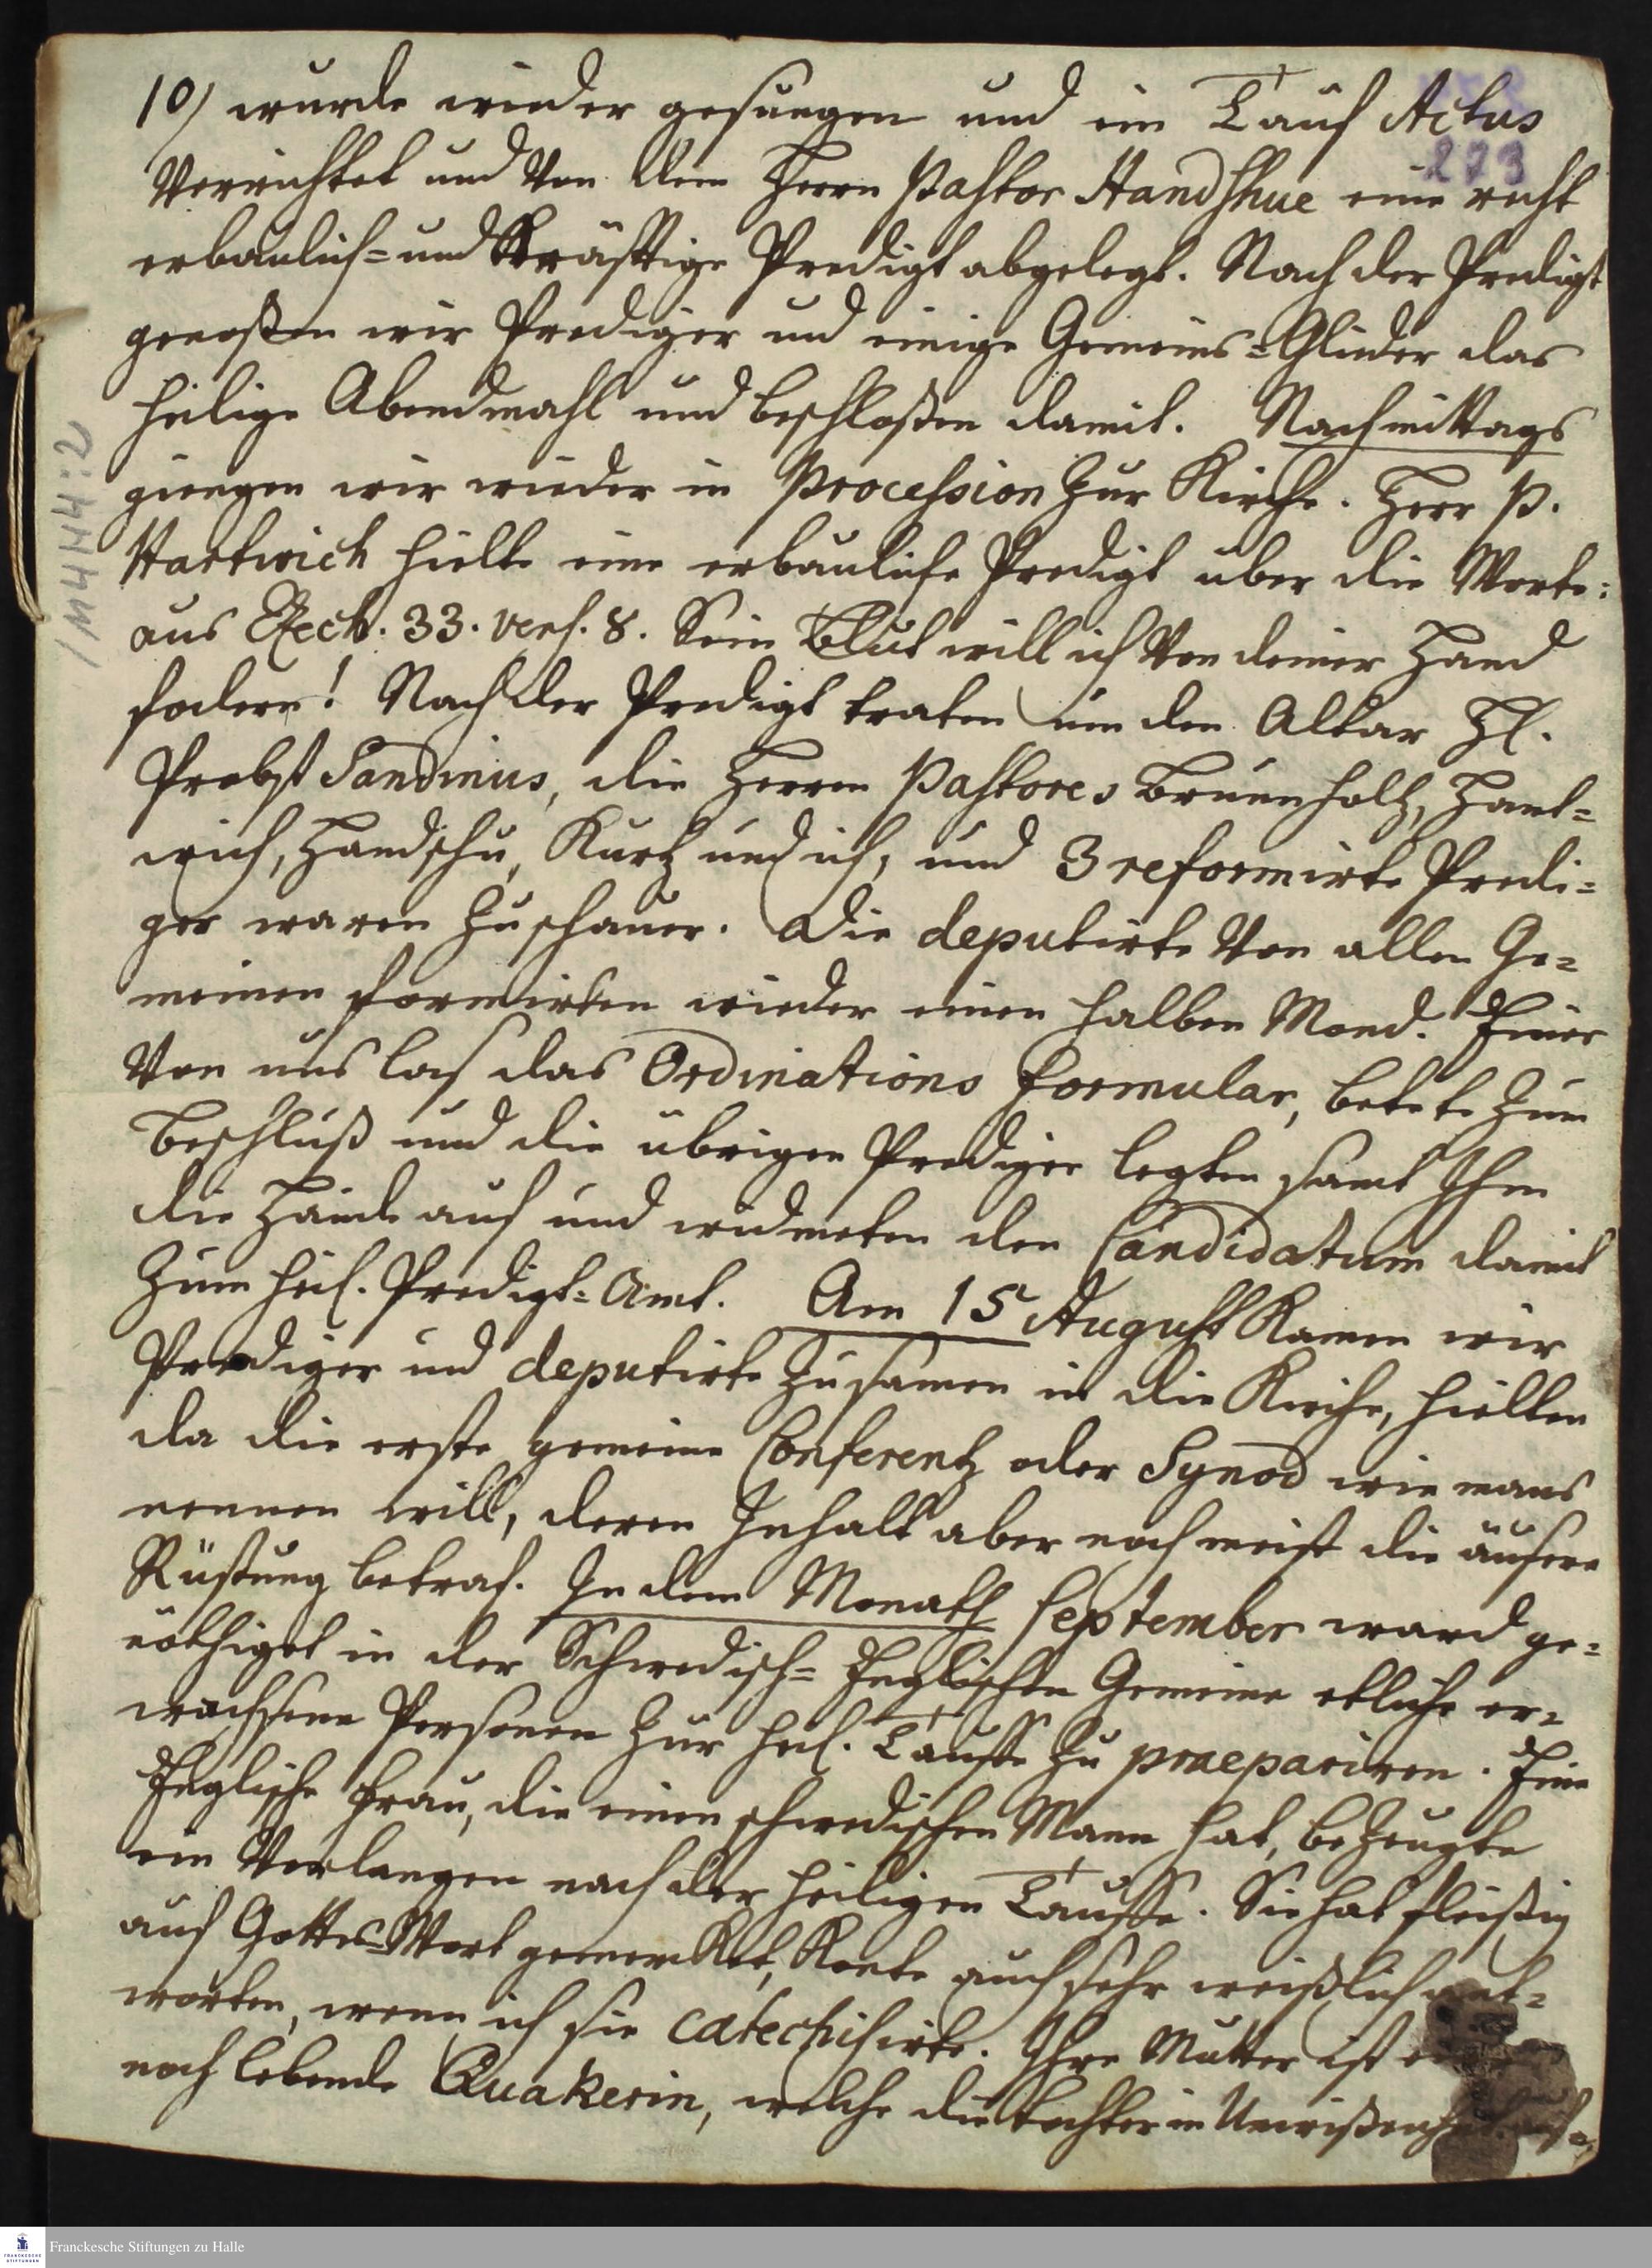 10) wurde wieder gesungen und ein Tauf Actus
273
verrichtet und von dem Herrn Pastor Handshue eine recht
erbaulich= und kräfftige Predigt abgelegt. Nach der Predigt
genoßen wir Prediger und einige Gemeins=Glieder das
heilige Abendmahl und beschloßen damit. Nachmittags
giengen wir wieder in Procession zur Kirche. Herr P.
Hartwich hielte eine erbauliche Predigt über die Worte:
aus Ezech. 33. vers. 8. Sein Blut will ich von deiner Hand
fodern! Nach der Predigt traten um den Altar H.
Probst Sandinus, die Herren Pastores Brunnholtz, Hart=
wich, Handschu, Kurtz und ich, und 3 reformirte Predi=
ger waren Zuschauer. Die deputirte von allen Ge=
meinen formirten wieder einen halben Mond. Einer
von uns las das Ordinations formular, betete zum
Beschluß und die übrigen Prediger legten samt Ihm
die Hände auf und widmeten den Candidatum damit
zum heil. Predigt=Amt. Am 15 August kamen wir
Prediger und deputirte zusamen in die Kirche, hielten
da die erste gemeine Conferentz oder Synod wie mans
nennen will, deren Inhalt aber noch meist die äusere
Rüstung betraf. In dem Monath September ward ge=
nöthiget in der Schwedisch= Englischen Gemeine etliche er=
wachsene Personen zur heil. Tauffe zu praepariren. Eine
Englische Frau, die einen schwedischen Mann hat, bezeugte
ein Verlangen nach der heiligen Tauffe. Sie hat fleißig
auf Gottes=Wort gemerket, konte auch sehr weißlich ant=
worten, wenn ich sie catechisirte. Ihre Mutter ist
noch lebende Quakerin, welche die tochter in Unwißenheit
/M4H4:2
Franckesche Stiftungen zu Halle